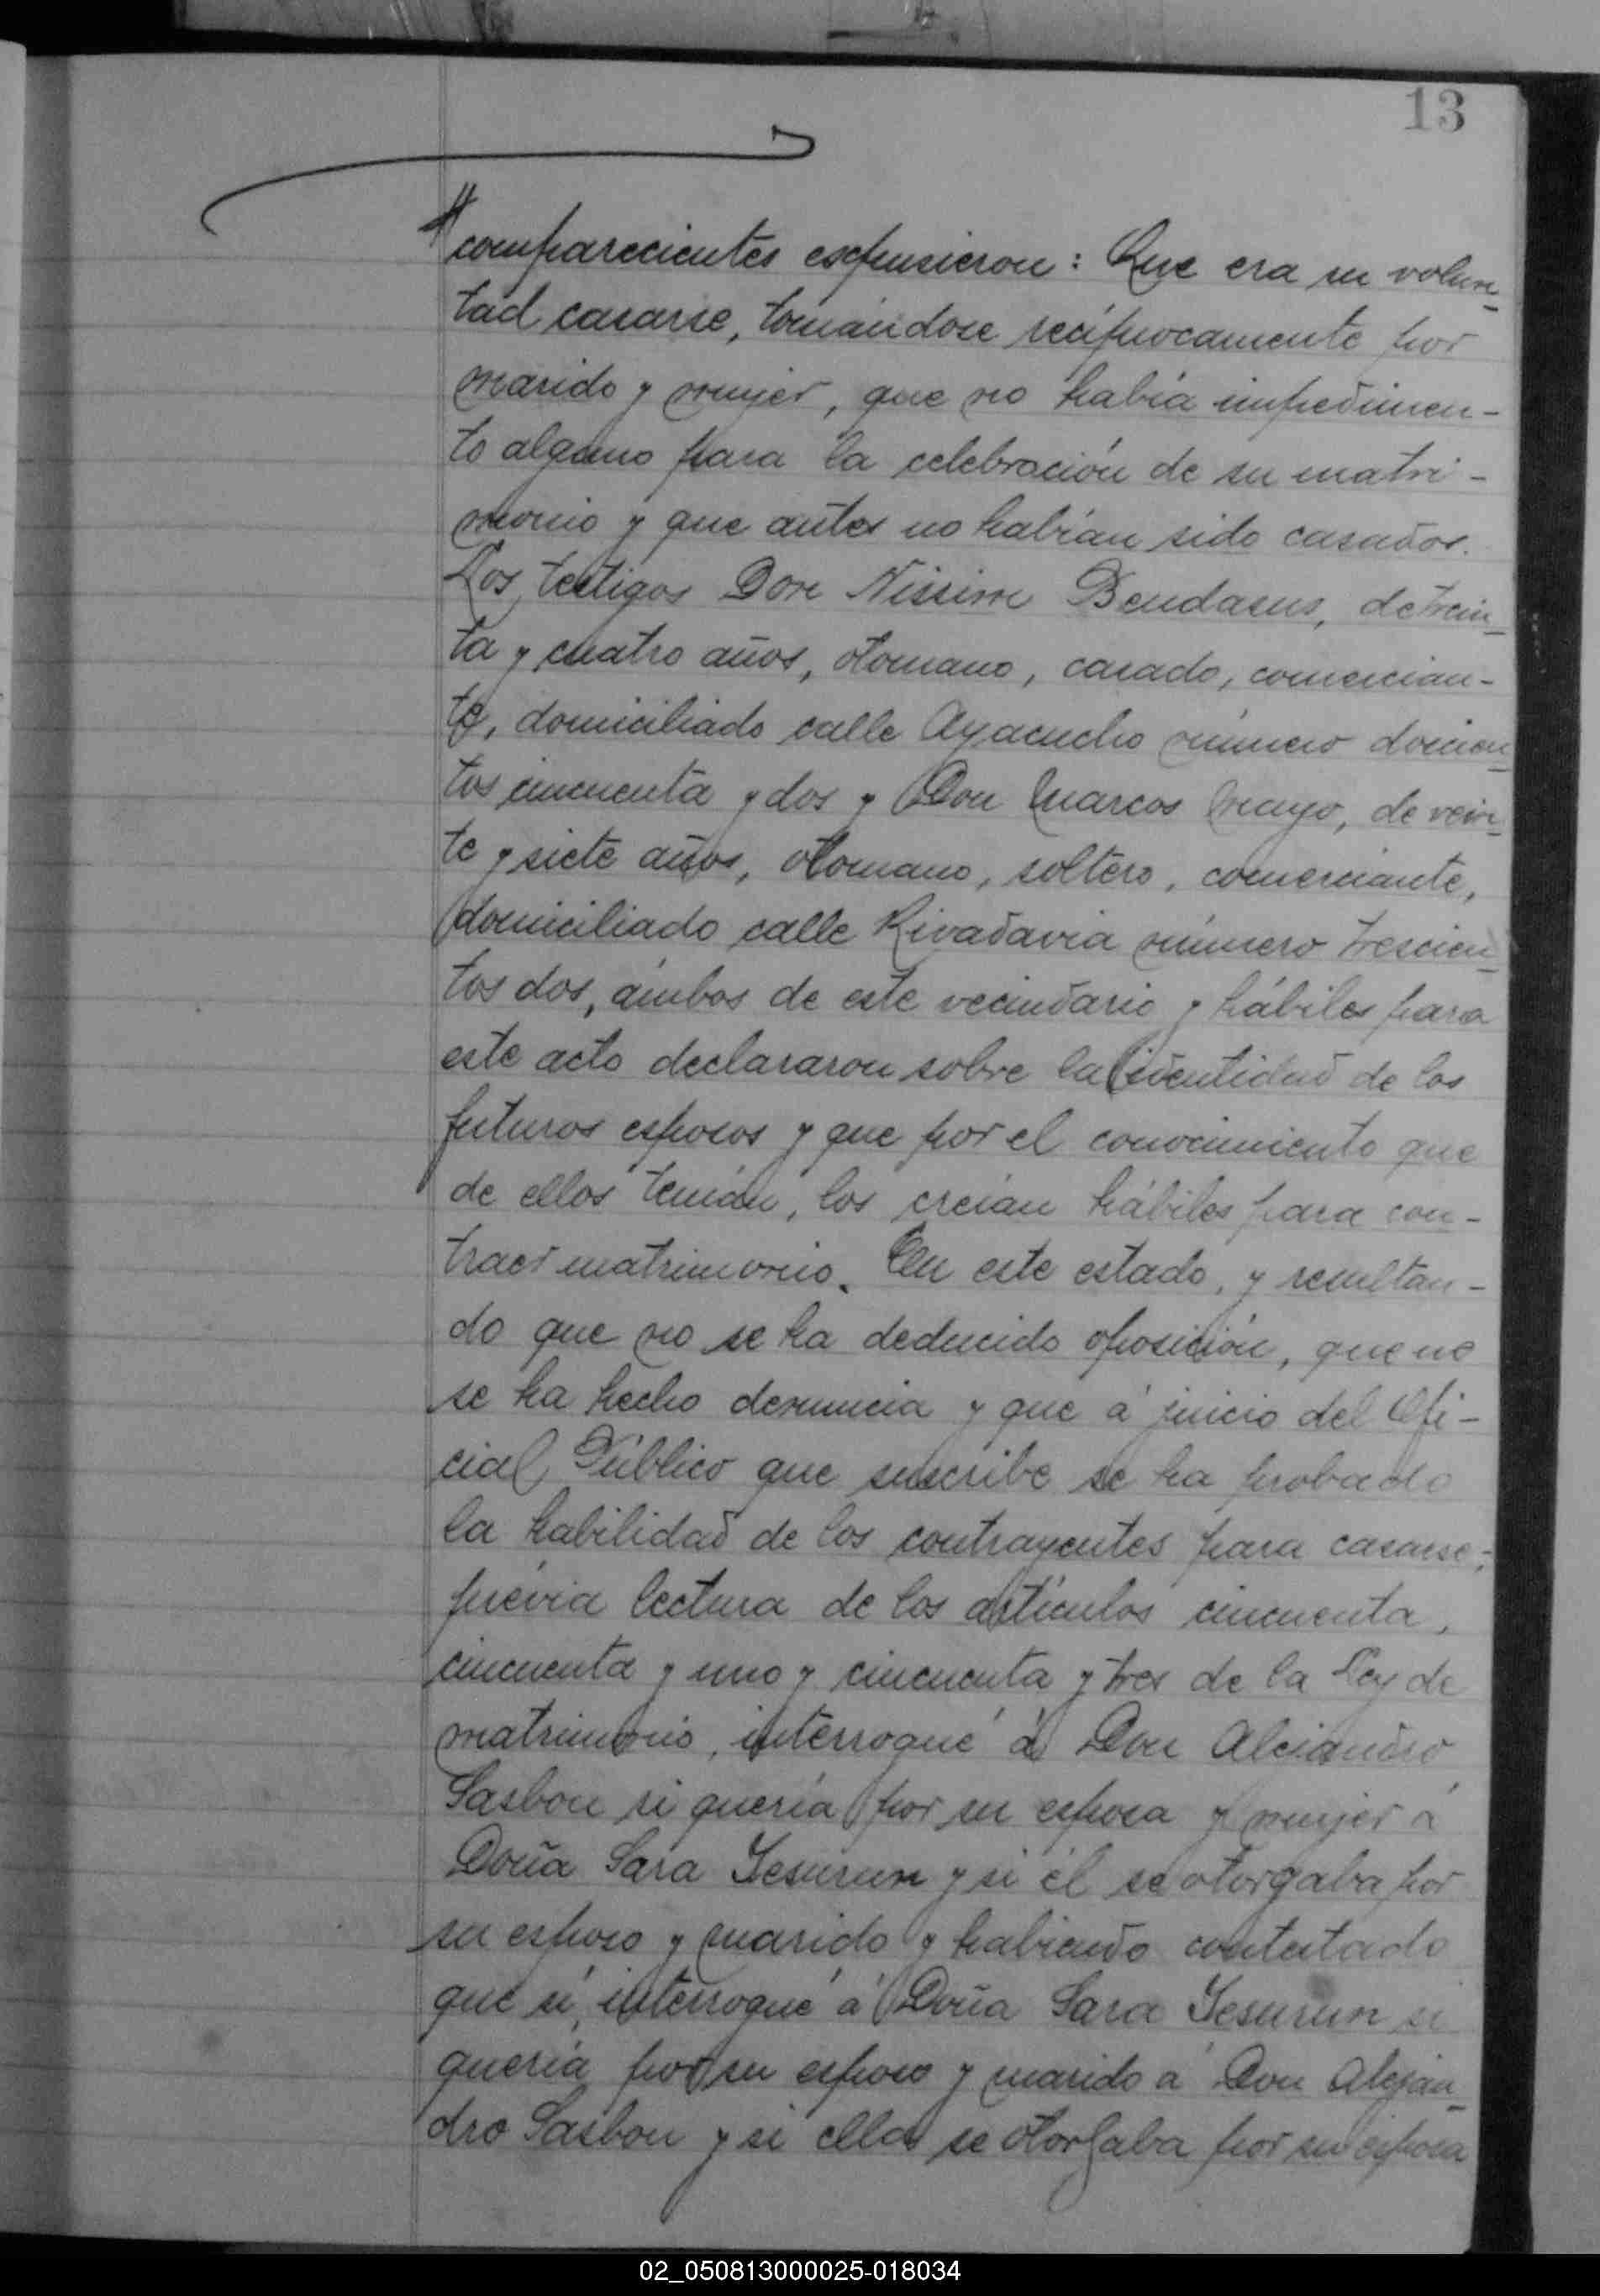 13
comparecientes expusieron: Que era su volun-
tad casarse, tomándose recíprocamente por
marido y mujer, que no había impedimen-
to alguno para la celebración de su matri-
monio y que antes no habían sido casados.
Los testigos Don Nissim Bendasus, de trein-
ta y cuatro años, otomano, casado, comercian-
te, domiciliado calle Ayacucho número doscien-
tos cincuenta y dos y Don Marcos Mayo, de vein-
te y siete años, otomano, soltero, comerciante,
domiciliado calle Rivadavia número trescien-
tos dos, ámbos de este vecindario y hábiles para
este acto declararon sobre la identidad de los
futuros esposos y que por el conocimiento que
de ellos tenían, los creían hábiles para con-
traer matrimonio. En este estado, y resultan-
do que no se ha deducido oposición, que no
se ha hecho denuncia y que á juicio del Ofi-
cial Público que suscribe se ha probado
la habilidad de los contrayentes para casarse;
prévia lectura de los artículos cincuenta,
cincuenta y uno y cincuenta y tres de la Ley de
matrimonio, interrogué á Don Alejandro
Sasbon si quería por su esposa y mujer á
Doña Sara Jesurun y si él se otorgaba por
su esposo y marido y habiendo contestado
que sí, interrogué á Doña Sara Jesurun si
quería por su esposo y marido á Don Alejan-
dro Sasbon y si ella se otorgaba por su esposa
02_050813000025-018034